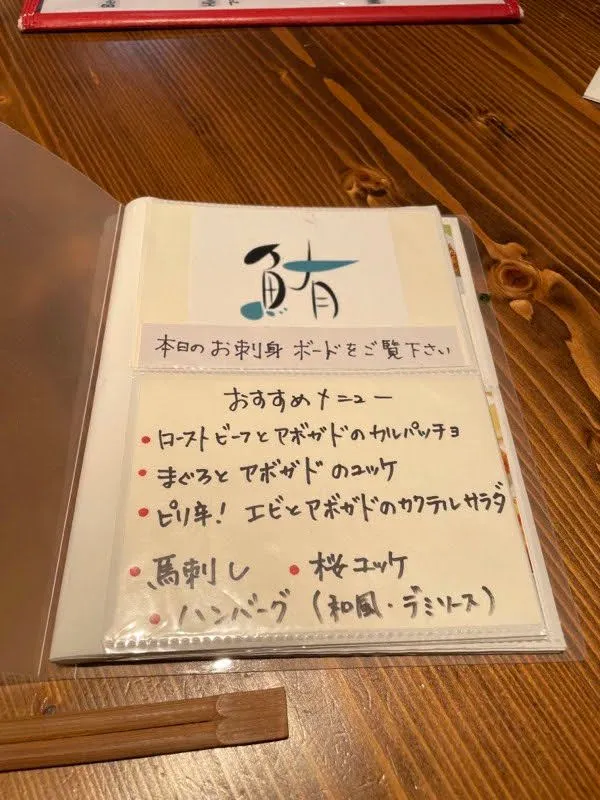 鮪
本日のお刺身 ボードをご覧下さい
おすすめメニュー
• ローストビーフとアボガドのカルパッチョ
• まぐろとアボガドのユッケ
• ピリ辛! エビとアボガドのカクテルサラダ
• 馬刺し • 桜ユッケ
• ハンバーグ (和風・デミソース)